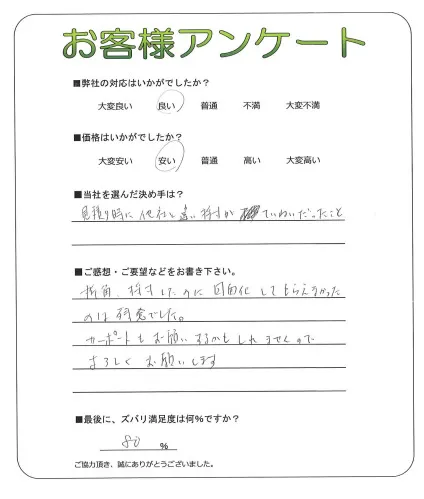 お客様アンケート
■弊社の対応はいかがでしたか？
大変良い 良い 普通 不満 大変不満
■価格はいかがでしたか？
大変安い 安い 普通 高い 大変高い
■当社を選んだ決め手は？
見積り時に他社と違い 採寸が ていねいだったこと
■ご感想・ご要望などをお書き下さい。
折角、採寸したのに図面化してもらえなかった
のは残念でした。
カーポートもお願いするかもしれませんので
よろしくお願いします
■最後に、ズバリ満足度は何%ですか？
80 %
ご協力頂き、誠にありがとうございました。